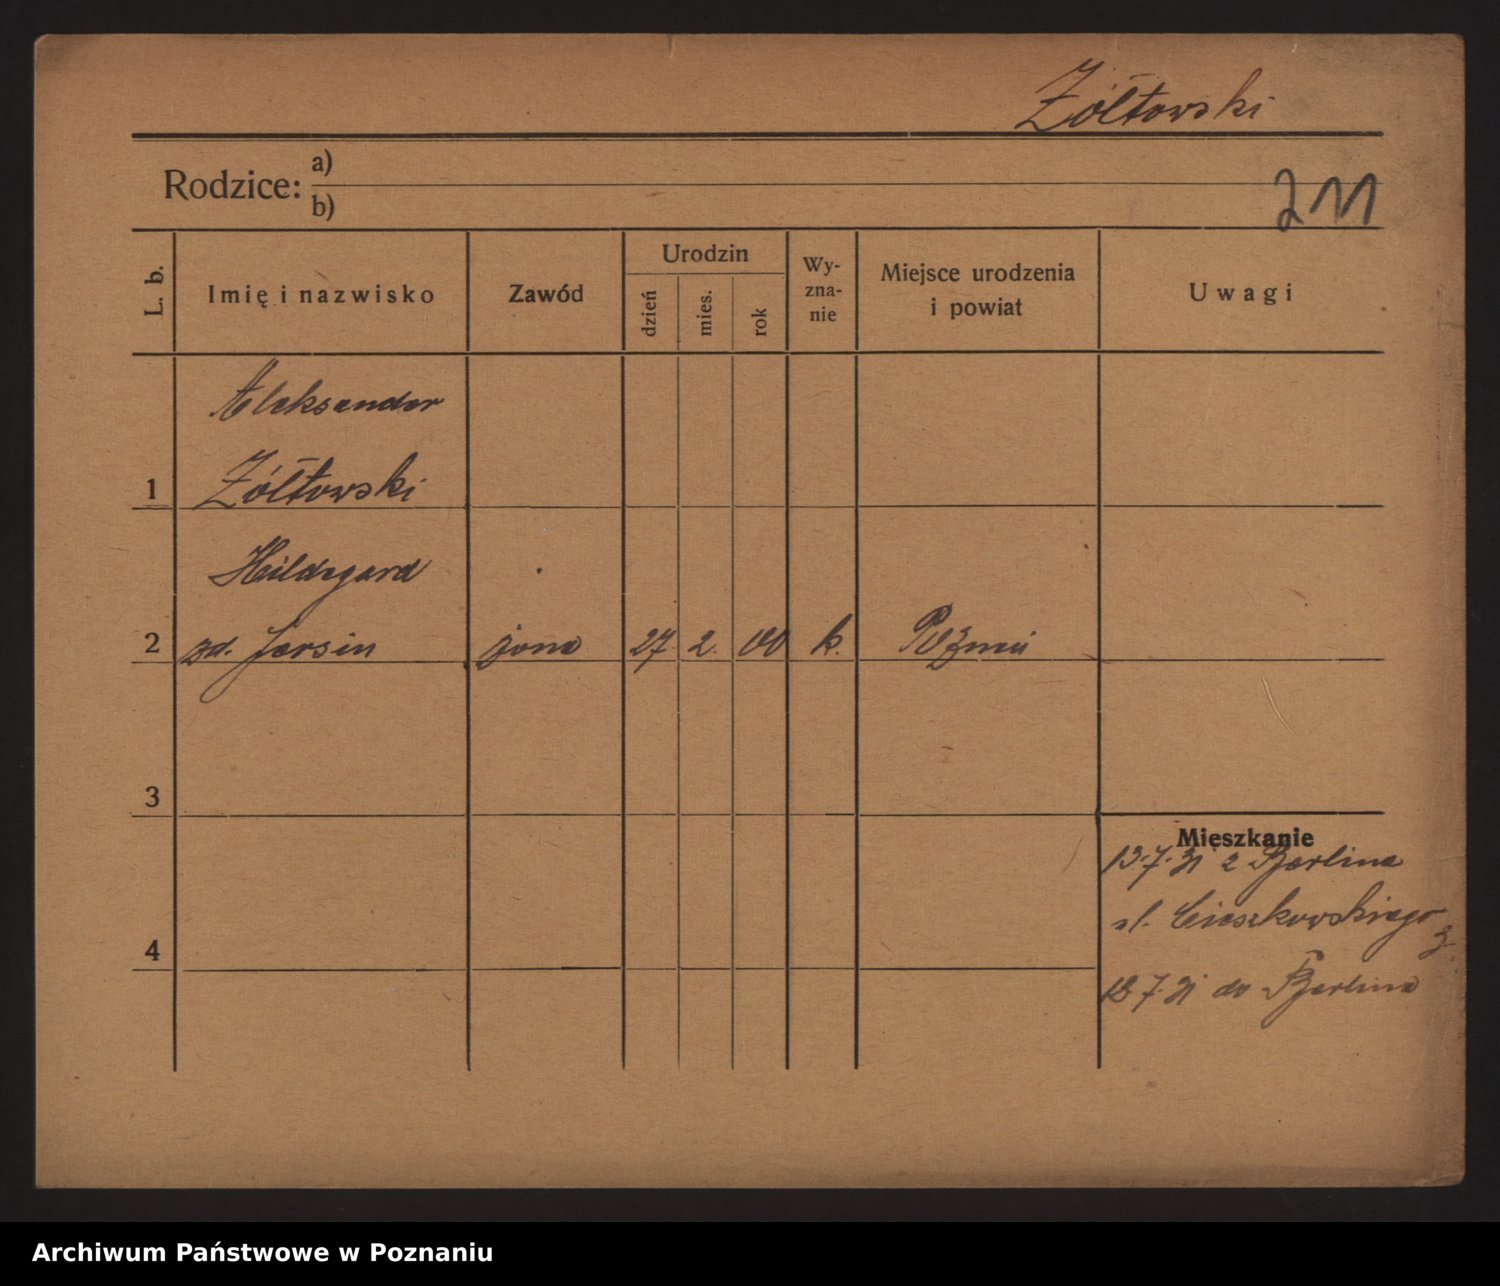 Żółtowski
Rodzice: a)
b)
211
L. b.
Imię i nazwisko
Zawód
Urodzin
dzień
mies.
rok
Wy-
zna-
nie
Miejsce urodzenia
i powiat
Uwagi
Aleksander
1 Żółtowski
Hildegard
2 zd. Jersin żona 27. 2. 00 k. Poznań
3
Mieszkanie
13.7.31 z Berlina
4 ul. Cieszkowskiego 3.
18.7.31 do Berlina
Archiwum Państwowe w Poznaniu